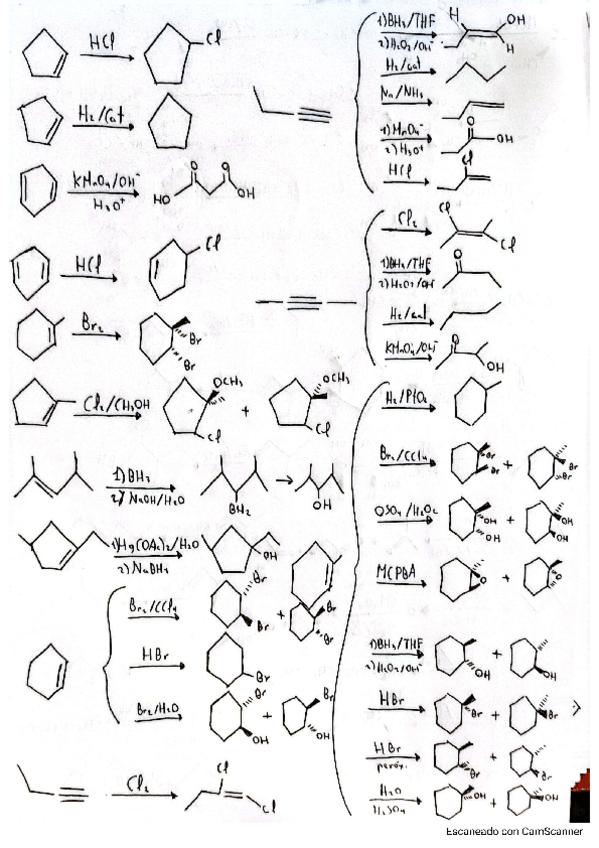 HCl
Cl
H₂/Cat
KMnO₄/OH⁻
H₃O⁺
HO
O
O
OH
HCl
Cl
Br₂
Br
Br
Cl₂/CH₃OH
OCH₃
Cl
+
OCH₃
Cl
1) BH₃
2) NaOH/H₂O
BH₂
OH
1) Hg(OAc)₂/H₂O
2) NaBH₄
OH
Br₂/CCl₄
Br
Br
+
Br
Br
HBr
Br
Br₂/H₂O
Br
OH
+
Br
OH
Cl₂
Cl
Cl
1) BH₃/THF
2) H₂O₂/OH⁻
H
OH
H
H₂/cat
Na/NH₃
1) MnO₄⁻
2) H₃O⁺
O
OH
HCl
Cl
Cl₂
Cl
Cl
1) BH₃/THF
2) H₂O₂/OH⁻
O
H₂/cat
KMnO₄/OH⁻
O
OH
H₂/PtO₂
Br₂/CCl₄
Br
Br
+
Br
Br
OsO₄/H₂O₂
OH
OH
+
OH
OH
MCPBA
O
+
O
1) BH₃/THF
2) H₂O₂/OH⁻
OH
+
OH
HBr
Br
+
Br
HBr
peróx.
Br
+
Br
H₂O
H₂SO₄
OH
+
OH
Escaneado con CamScanner